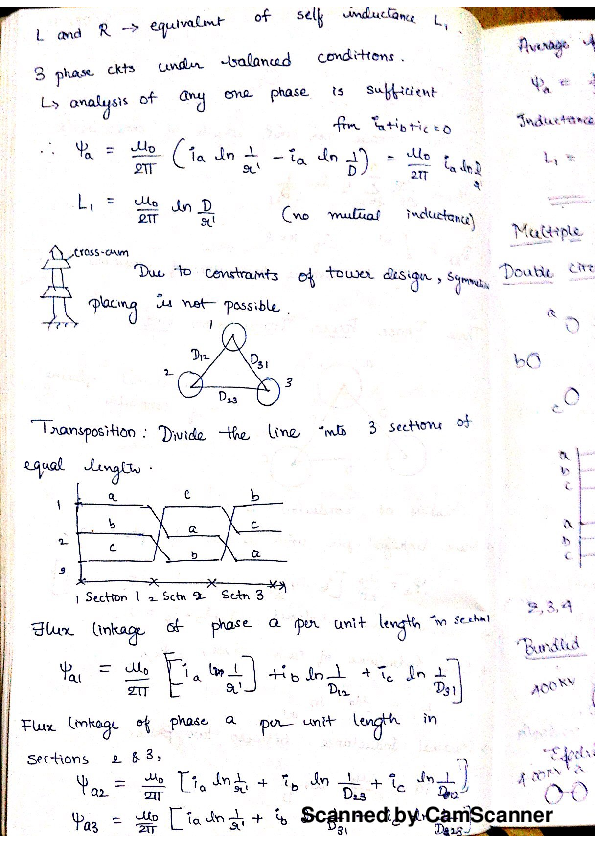 L and R → equivalent of self inductance L₁.
3 phase ckts under balanced conditions.
↳ analysis of any one phase is sufficient
from ia+ib+ic=0
∴ Ψa = μ0/2π (ia ln 1/r' - ia ln 1/D) = μ0/2π ia ln
L₁ = μ0/2π ln D/r' (no mutual inductance)
cross-arm
Due to constraints of tower design, symmetric
placing is not possible.
1
D12 D31
2 3
D23
Transposition: Divide the line into 3 sections of
equal length.
a c b
1
b a c
2
c b a
3
1 Section 1 2 Sctn 2 Sctn 3
Flux linkage of phase a per unit length in section 1
Ψa1 = μ0/2π [ia ln 1/r' + ib ln 1/D12 + ic ln 1/D31]
Flux linkage of phase a per unit length in
sections 2 & 3,
Ψa2 = μ0/2π [ia ln 1/r' + ib ln 1/D23 + ic ln 1/D12]
Ψa3 = μ0/2π [ia ln 1/r' + ib D31 D23]
Scanned by CamScanner
Average
Ψa =
Inductance
L₁ =
Multiple
Double circ
a
b
c
a
b
c
a
b
c
2,3,4
Bundled
400 KV
400 KV